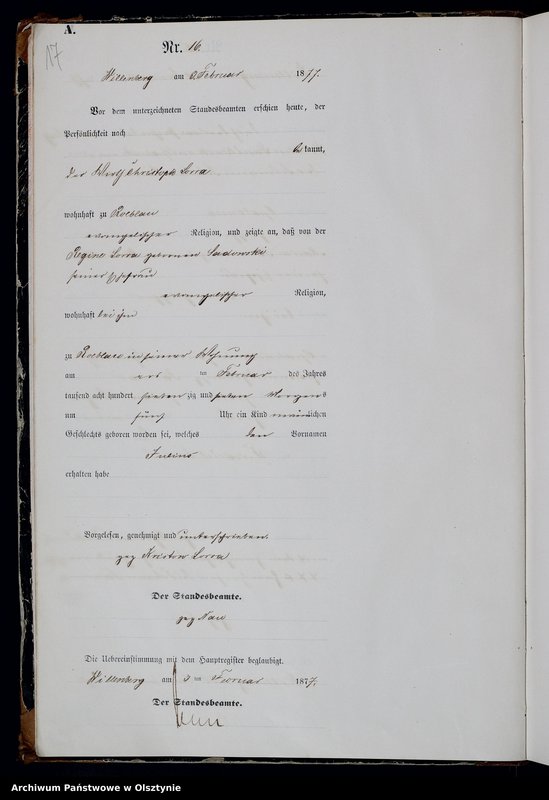 A.
17
Nr. 16.
Willenberg am Februar 1877.
Vor dem unterzeichneten Standesbeamten erschien heute, der
Persönlichkeit nach
be kannt,
der Wirth Christoph Lorra
wohnhaft zu Roeblau
evangelischer Religion, und zeigte an, daß von der
Regine Lorra geborenen Sadowski
seiner Ehefrau
evangelischer Religion,
wohnhaft bei ihm
zu Roeblau in seiner Wohnung
am ten Februar des Jahres
tausend acht hundert sieben zig und sieben Morgens
um fünf Uhr ein Kind männlichen
Geschlechts geboren worden sei, welches den Vornamen
Julius
erhalten habe
Vorgelesen, genehmigt und unterschrieben.
gez Lorra
Der Standesbeamte.
gez
Die Uebereinstimmung mit dem Hauptregister beglaubigt.
Willenberg am ten Februar 1877.
Der Standesbeamte.
Archiwum Państwowe w Olsztynie